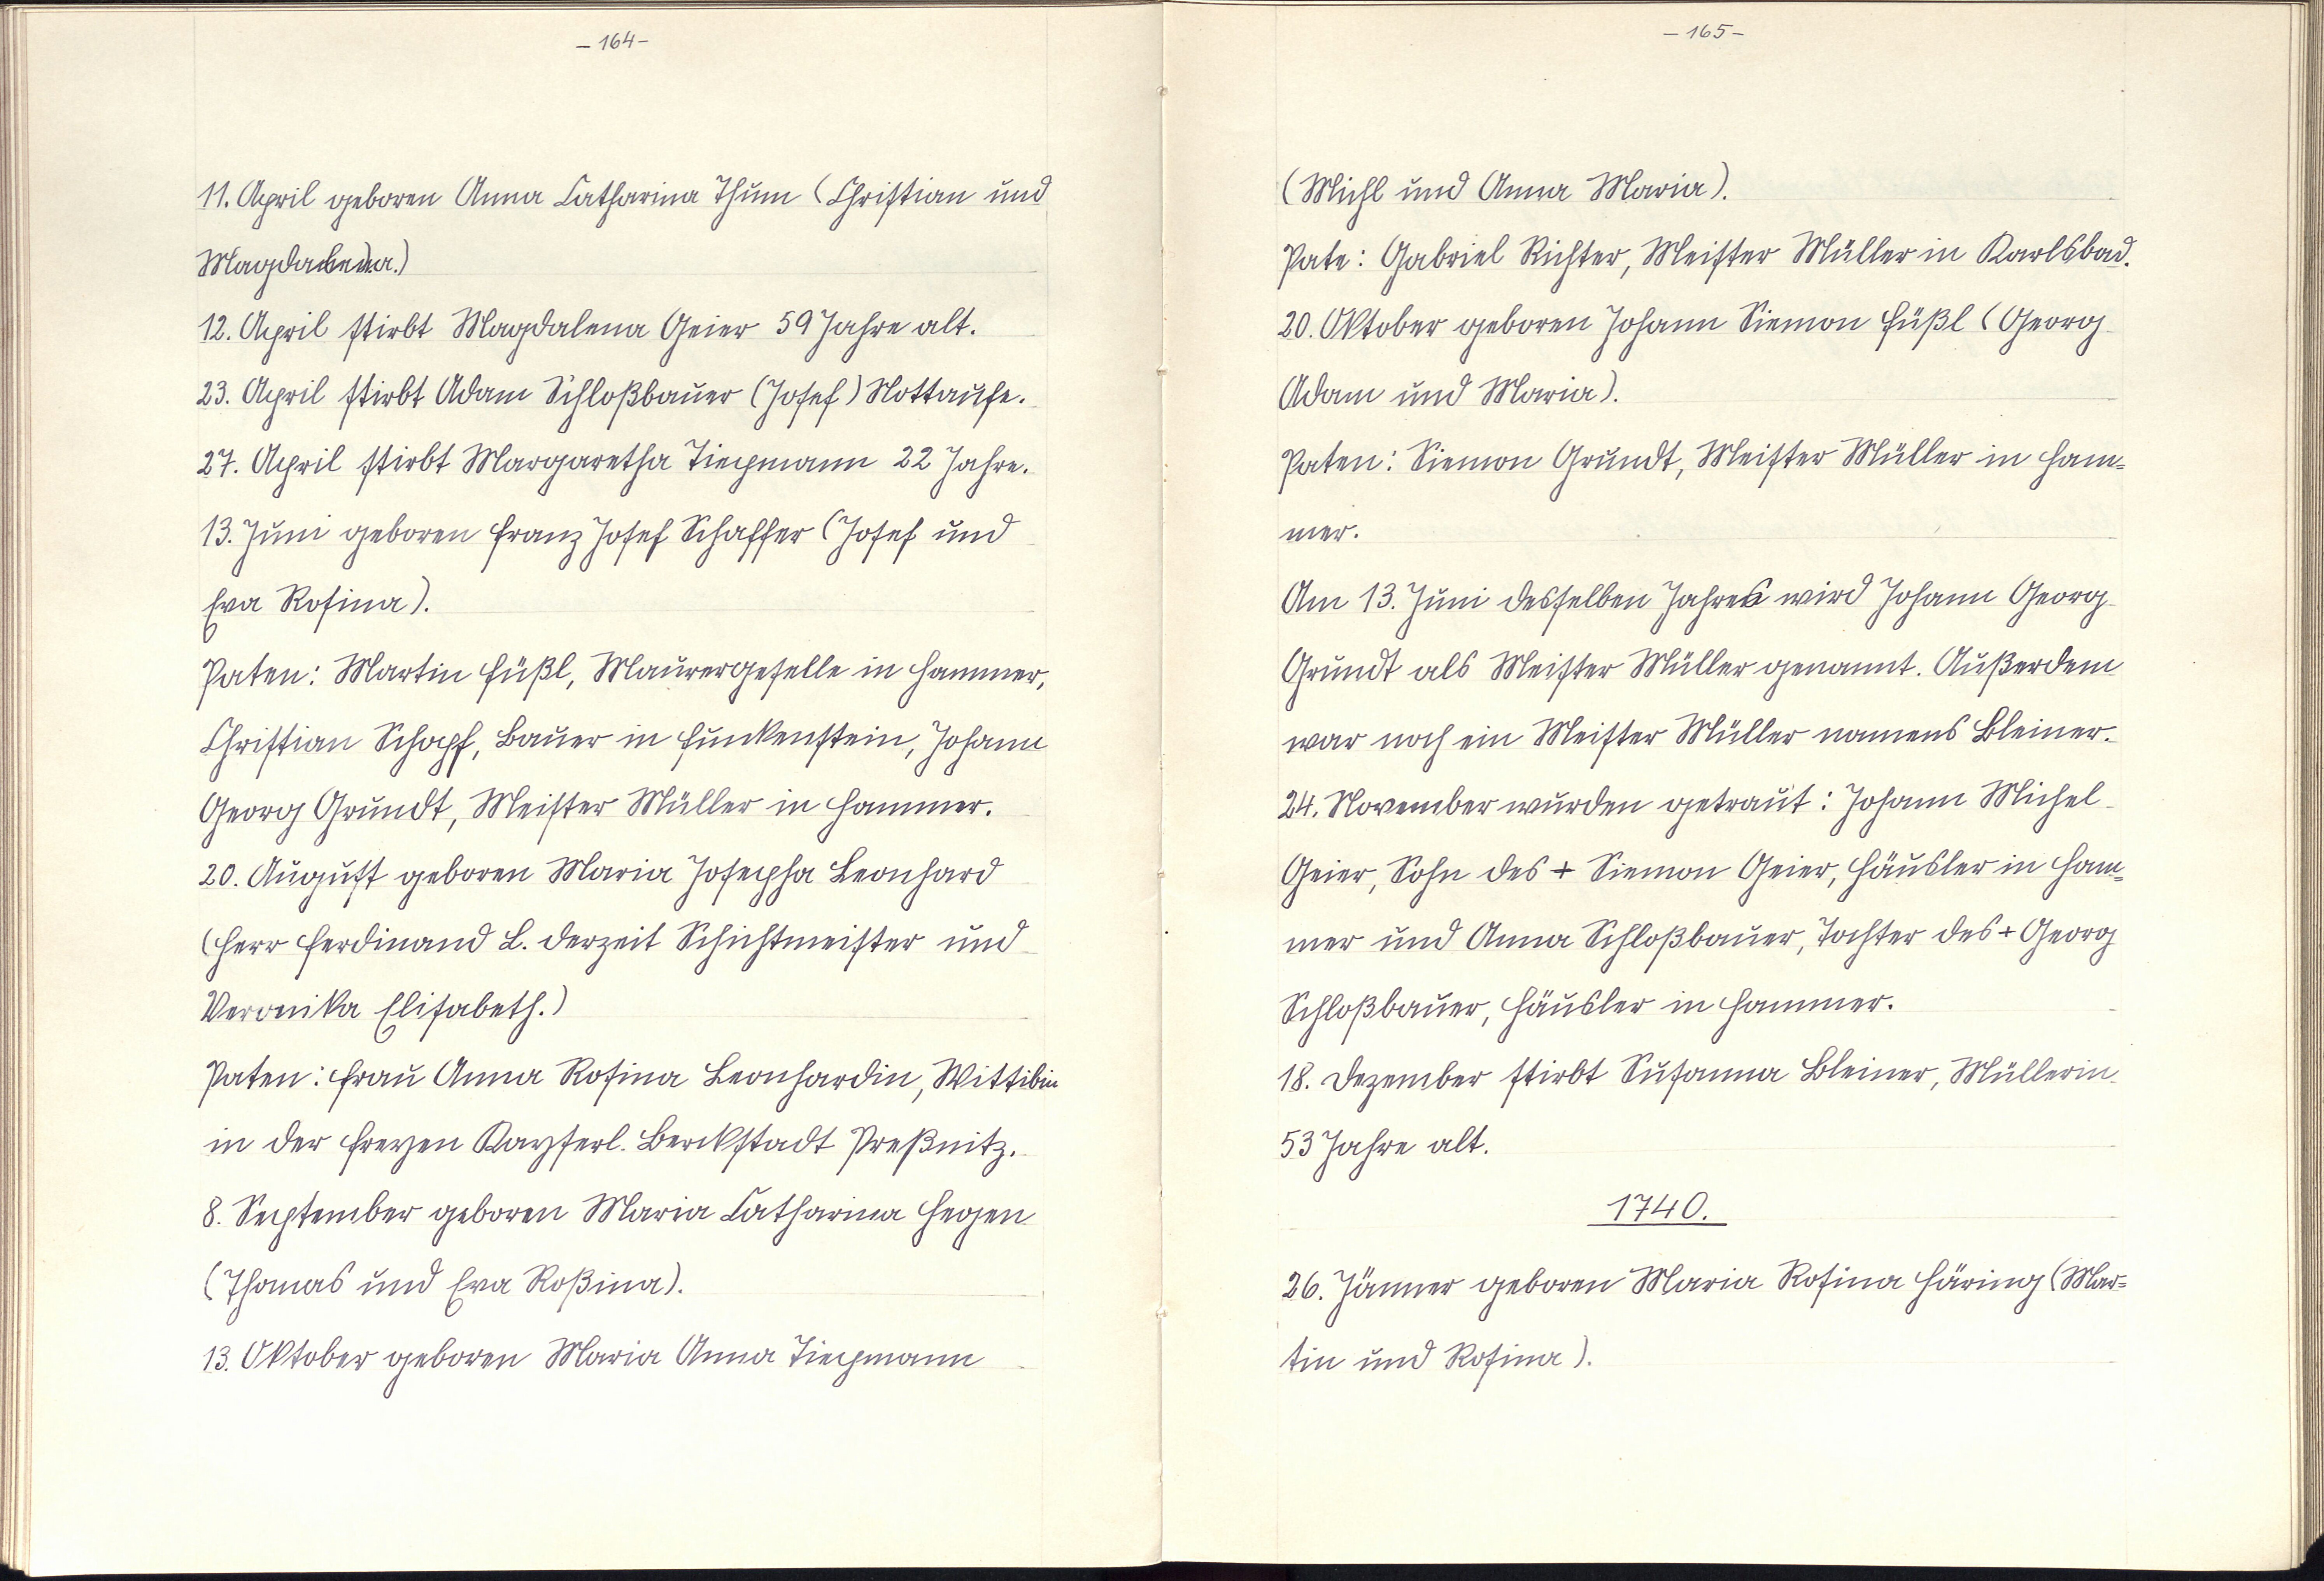 - 164 -
11. April geboren Anna Catharina Thum (Christian und
Magdalena.)
12. April stirbt Magdalena Geier 59 Jahre alt.
23. April stirbt Adam Schloßbauer (Josef) Nottaufe.
27. April stirbt Margaretha Tiepmann 22 Jahre.
13. Juni geboren Franz Josef Schaffer (Josef und
Eva Rosina).
Paten: Martin Füßl, Maurergeselle in Hammer,
Christian Schopf, Bauer in Funkenstein, Johann
Georg Grundt, Meister Müller in Hammer.
20. August geboren Maria Josepha Leonhard
(Herr Ferdinand L. derzeit Schichtmeister und
Veronika Elisabeth.)
Paten: Frau Anna Rosina Leonhardin, Wittibin
in der Freyen Kayserl. Berckstadt Preßnitz.
8. September geboren Maria Catharina Hegen
(Thomas und Eva Roßina).
13. Oktober geboren Maria Anna Tiepmann
- 165 -
(Michl und Anna Maria).
Pate: Gabriel Richter, Meister Müller in Karlsbad.
20. Oktober geboren Johann Siemon Füßl (Georg
Adam und Maria).
Paten: Siemon Grundt, Meister Müller in Ham=
mer.
Am 13. Juni desselben Jahres wird Johann Georg
Grundt als Meister Müller genannt. Außerdem
war noch ein Meister Müller namens Bleiner.
24. November wurden getraut: Johann Michel
Geier, Sohn des + Siemon Geier, Häusler in Ham=
mer und Anna Schloßbauer, Tochter des + Georg
Schloßbauer, Häusler in Hammer.
18. Dezember stirbt Susanna Bleiner, Müllerin
53 Jahre alt.
1740.
26. Jänner geboren Maria Rosina Häring (Mar=
tin und Rosina).